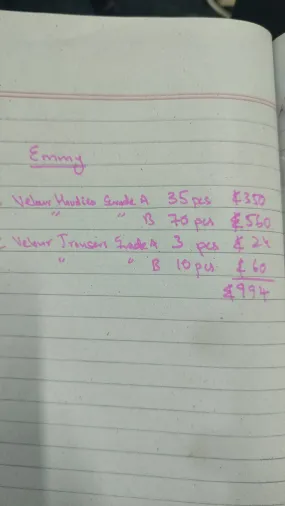 Emmy
Velour Hoodies Grade A 35 pcs £350
" " B 70 pcs £560
Velour Trousers Grade A 3 pcs £ 24
" " B 10 pcs £ 60
£994